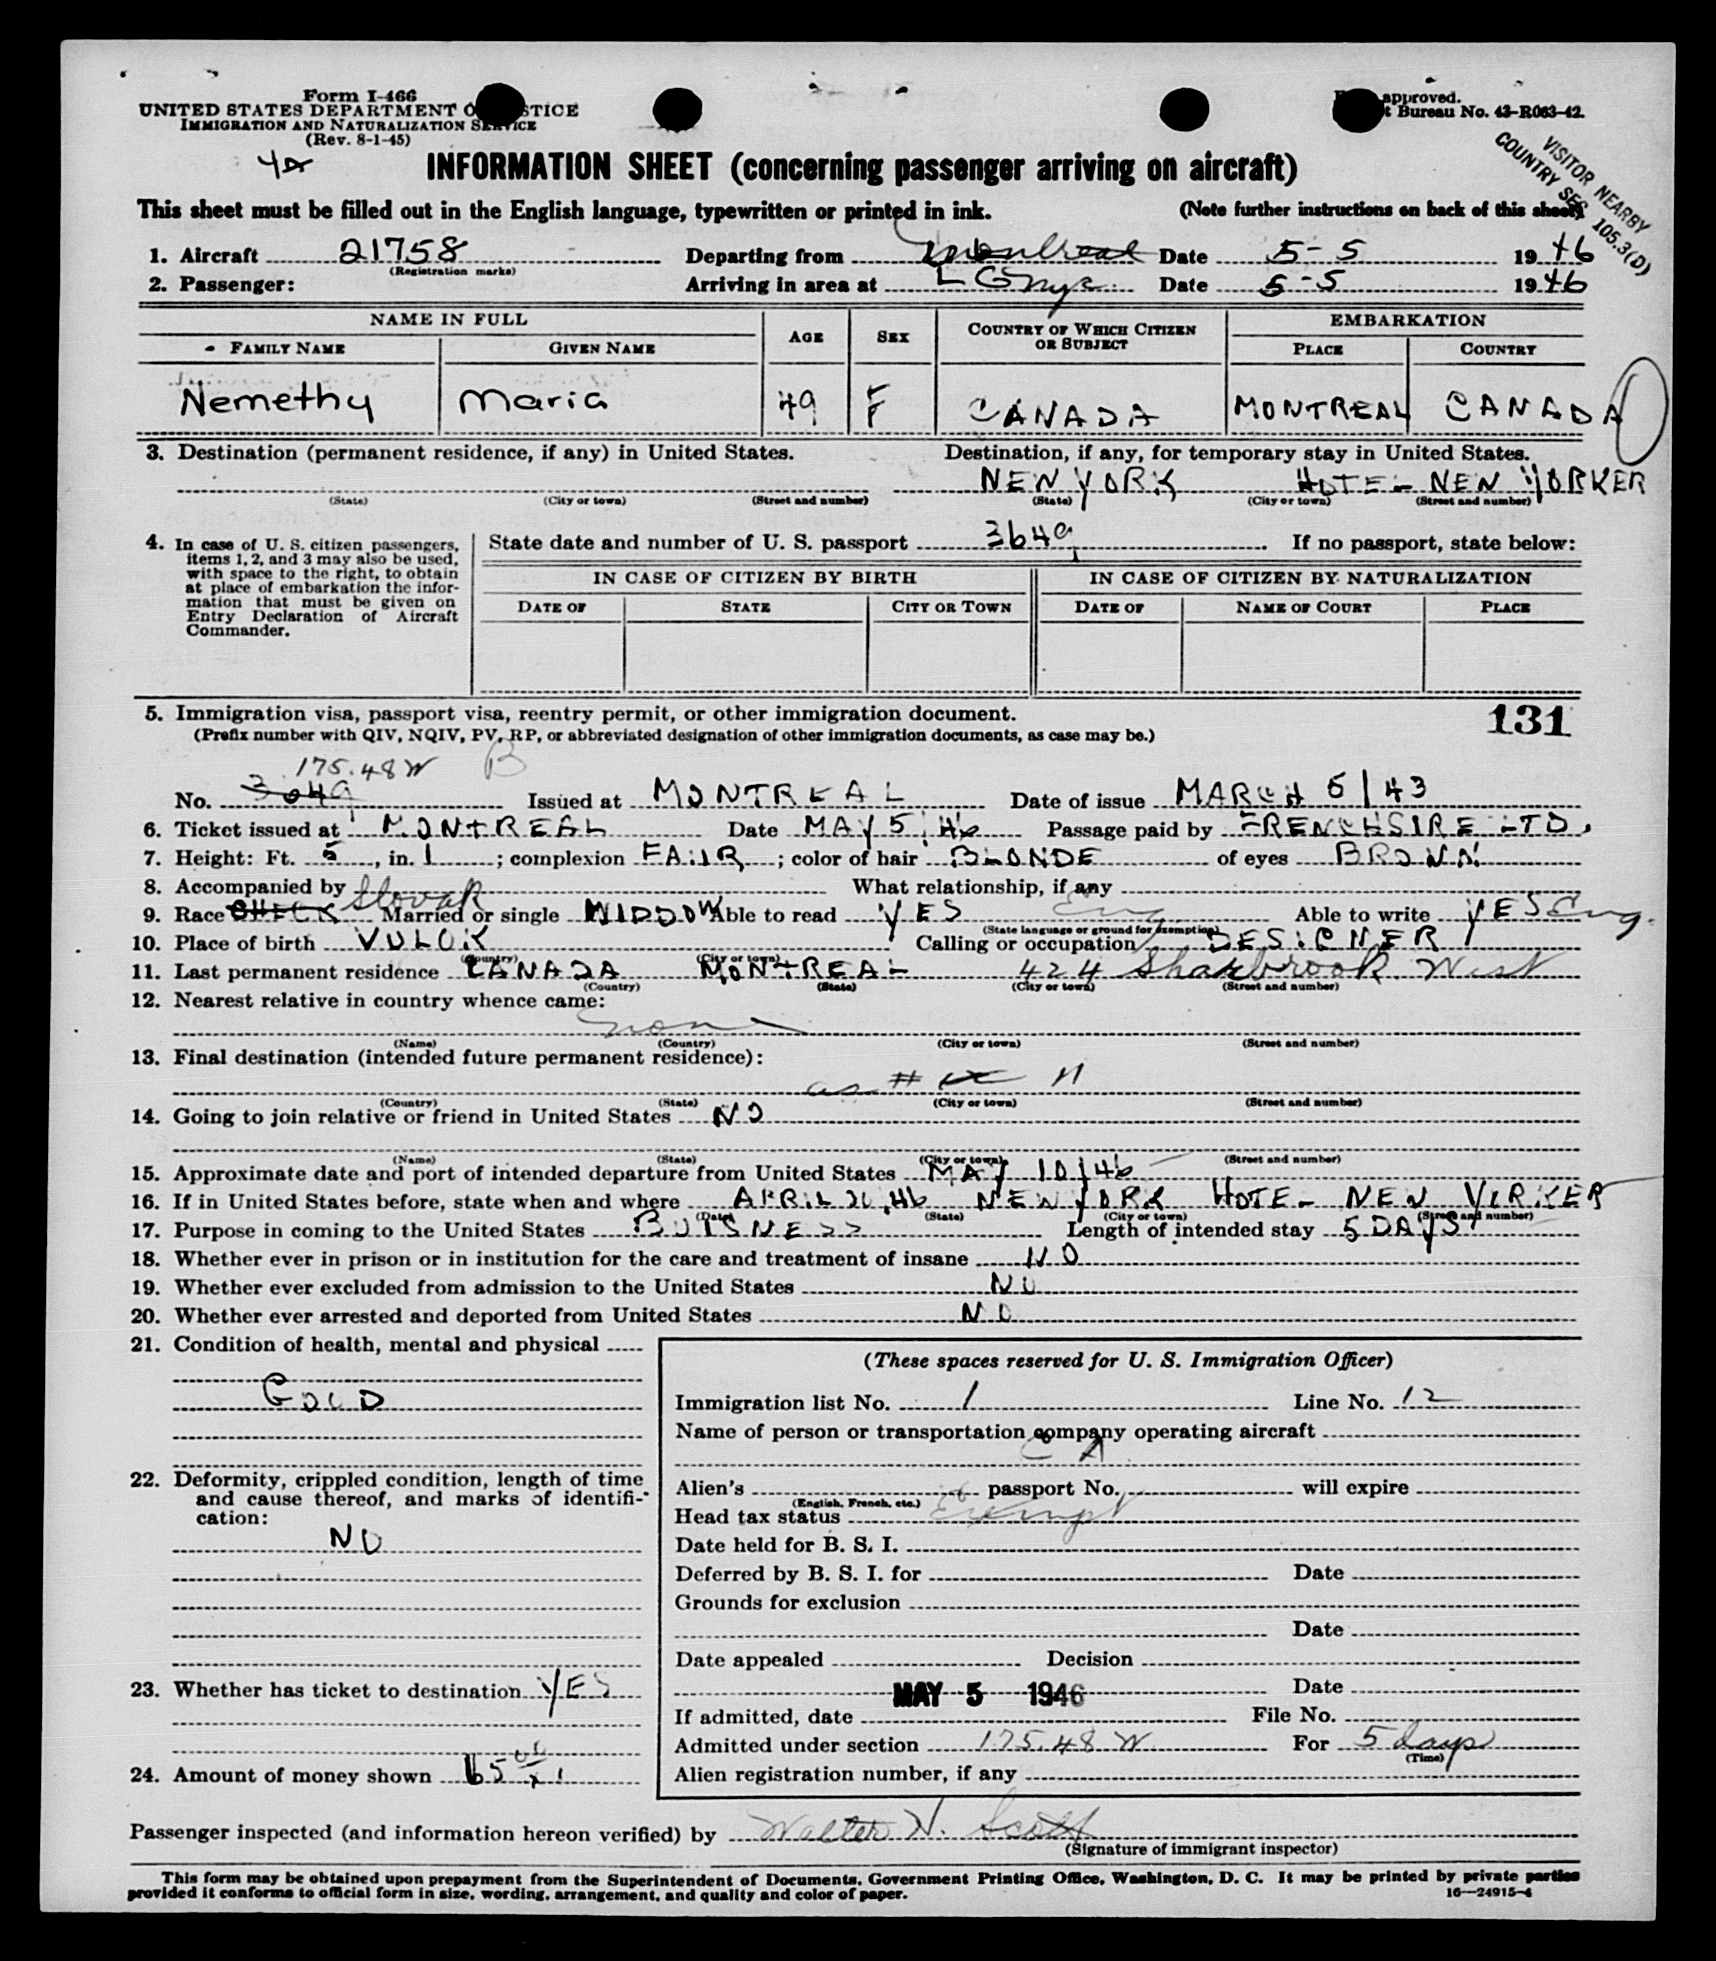 Form I-466
UNITED STATES DEPARTMENT O STICE
IMMIGRATION AND NATURALIZATION SERVICE
(Rev. 8-1-45)
approved.
t Bureau No. 43-R063-42.
VISITOR NEARBY
COUNTRY SEC. 105.3(D)
INFORMATION SHEET (concerning passenger arriving on aircraft)
This sheet must be filled out in the English language, typewritten or printed in ink. (Note further instructions on back of this sheet)
1. Aircraft 21758 Departing from Montreal Date 5-5 1946
(Registration marks)
2. Passenger: Arriving in area at L G nyc Date 5-5 1946
NAME IN FULL AGE SEX COUNTRY OF WHICH CITIZEN OR SUBJECT EMBARKATION
FAMILY NAME GIVEN NAME PLACE COUNTRY
Nemethy Maria 49 F CANADA MONTREAL CANADA
3. Destination (permanent residence, if any) in United States. Destination, if any, for temporary stay in United States.
NEW YORK HOTEL NEW YORKER
(State) (City or town) (Street and number) (State) (City or town) (Street and number)
4. In case of U. S. citizen passengers, items 1, 2, and 3 may also be used, with space to the right, to obtain at place of embarkation the information that must be given on Entry Declaration of Aircraft Commander.
State date and number of U. S. passport 3649 If no passport, state below:
IN CASE OF CITIZEN BY BIRTH IN CASE OF CITIZEN BY NATURALIZATION
DATE OF STATE CITY OR TOWN DATE OF NAME OF COURT PLACE
5. Immigration visa, passport visa, reentry permit, or other immigration document. 131
(Prefix number with QIV, NQIV, PV, RP, or abbreviated designation of other immigration documents, as case may be.)
175.48 W B
No. 3049 Issued at MONTREAL Date of issue MARCH 5/43
6. Ticket issued at MONTREAL Date MAY 5, 46 Passage paid by FRENCHSIRE LTD.
7. Height: Ft. 5, in. 1; complexion FAIR; color of hair BLONDE of eyes BROWN
8. Accompanied by What relationship, if any
9. Race Slovak Married or single WIDDOW Able to read YES Eng Able to write YES Eng.
(State language or ground for exemption)
10. Place of birth VULOK Calling or occupation DESIGNER
(Country) (City or town)
11. Last permanent residence CANADA MONTREAL 424 Sharbrook West
(Country) (State) (City or town) (Street and number)
12. Nearest relative in country whence came:
none
(Name) (Country) (City or town) (Street and number)
13. Final destination (intended future permanent residence):
as # 11
(Country) (State) (City or town) (Street and number)
14. Going to join relative or friend in United States NO
(Name) (State) (City or town) (Street and number)
15. Approximate date and port of intended departure from United States MAY 10/46
16. If in United States before, state when and where APRIL 20, 46 NEW YORK HOTEL NEW YORKER
(Date) (State) (City or town) (Street and number)
17. Purpose in coming to the United States BUISNESS Length of intended stay 5 DAYS
18. Whether ever in prison or in institution for the care and treatment of insane NO
19. Whether ever excluded from admission to the United States NO
20. Whether ever arrested and deported from United States NO
21. Condition of health, mental and physical
GOOD
22. Deformity, crippled condition, length of time and cause thereof, and marks of identification:
NO
23. Whether has ticket to destination YES
24. Amount of money shown 65 00
(These spaces reserved for U. S. Immigration Officer)
Immigration list No. 1 Line No. 12
Name of person or transportation company operating aircraft
C A
Alien's passport No. will expire
(English, French, etc.)
Head tax status Exempt
Date held for B. S. I.
Deferred by B. S. I. for Date
Grounds for exclusion
Date
Date appealed Decision
Date
MAY 5 1946
If admitted, date File No.
Admitted under section 175.48 W For 5 days
(Time)
Alien registration number, if any
Passenger inspected (and information hereon verified) by Walter N. Scott
(Signature of immigrant inspector)
This form may be obtained upon prepayment from the Superintendent of Documents, Government Printing Office, Washington, D. C. It may be printed by private parties
provided it conforms to official form in size, wording, arrangement, and quality and color of paper. 16—24915-4